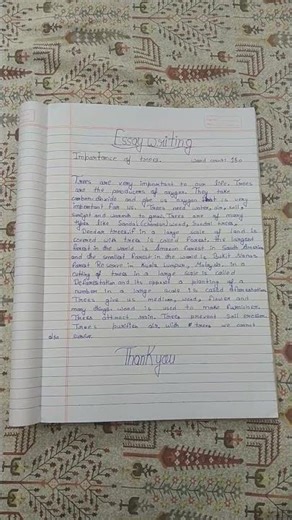 Essay writing
Importance of trees. word count 150
Trees are very important to our life. Trees
are the producers of oxygen. They take
carbondioxide and give us oxygen that is very
important for us. Trees need water, air, soil,
sunlight and warmth to grow. Trees are of many
types like Sandal (chandan) wood,
Deodar trees. If in a large scale of land is
covered with trees is called forest. The largest
forest in the world is Amazon forest in South America
and the smallest forest in the world is Bukit Nanas
forest Reserve in Kuala Lumpur, Malaysia. In a
cutting of trees in a large scale is called
Deforestation and its opposit a planting of a
number in a large scale is called Afforestation.
Trees give us medicine, wood, flower and
many things. wood is used to make furniture.
Trees attract rain. Trees prevent soil erosion.
Trees purifies air, with trees we cannot
also survive.
Thank you